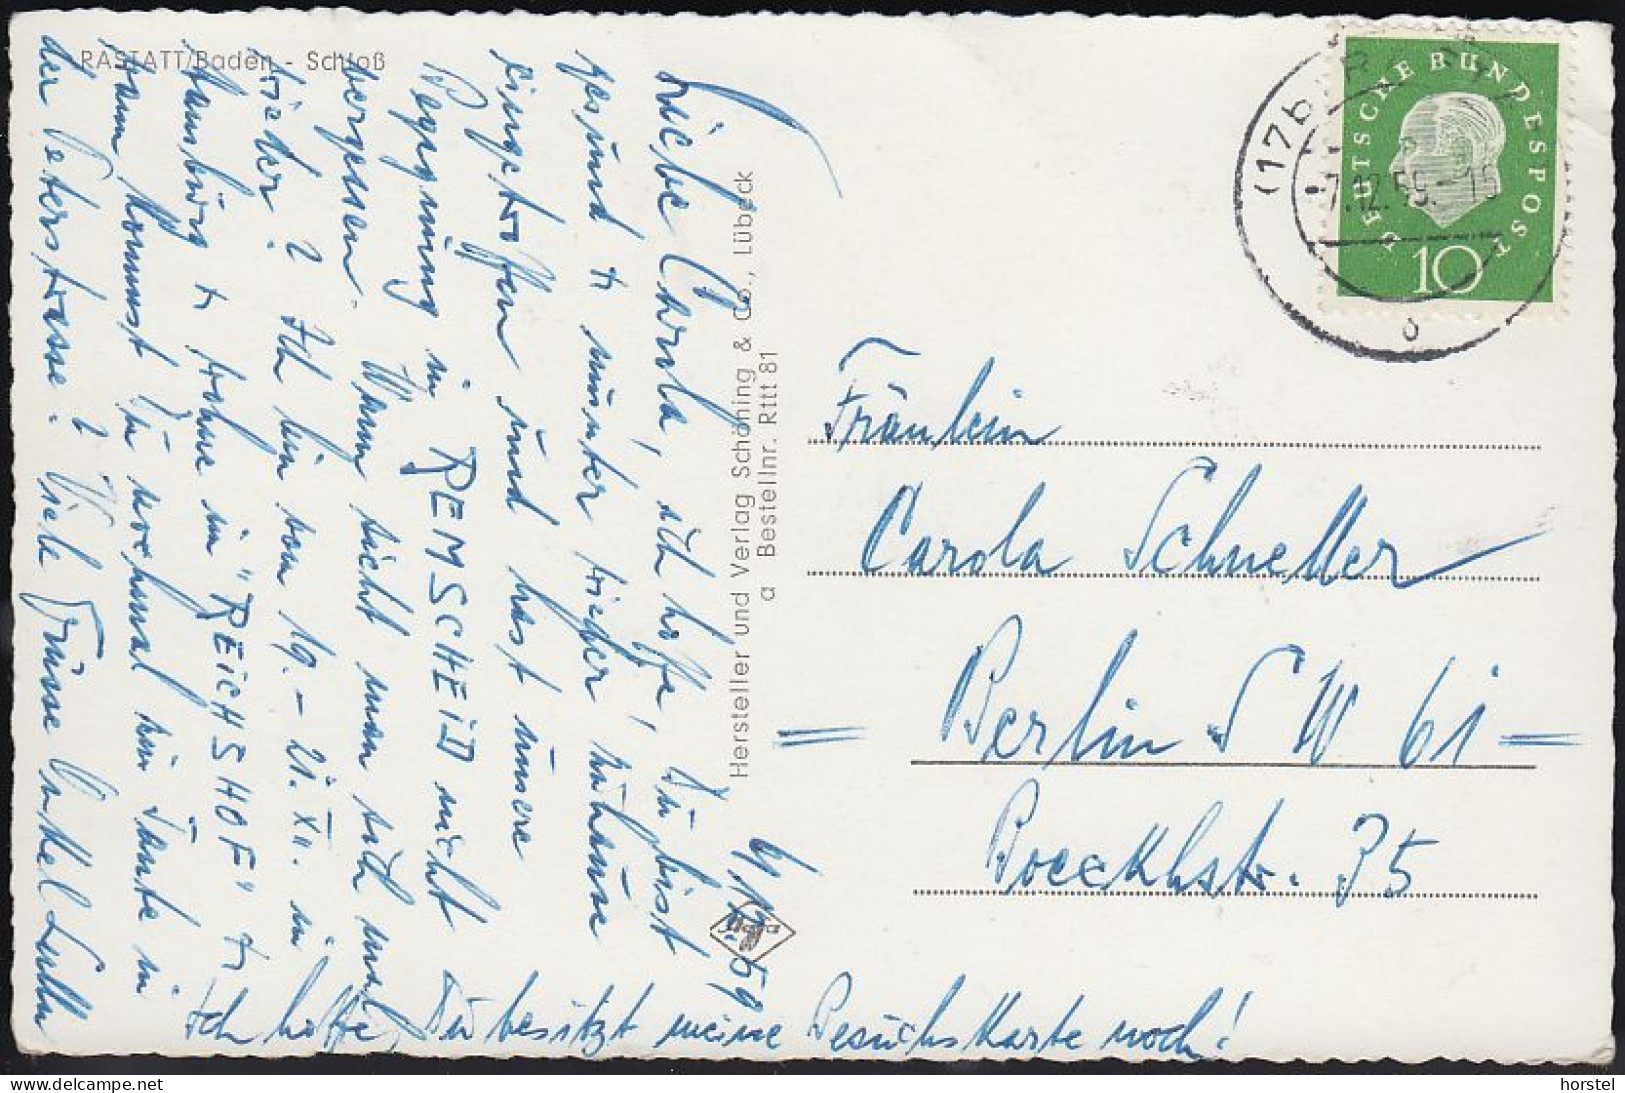 RASTATT/Baden - Schloß
6/12.59
Liebe Carola, ich hoffe, Du bist
gesund + munter wieder zuhause
eingetroffen und hast unsere
Begegnung in REMSCHEID nicht
vergessen. Wann sieht man sich mal
wieder? Ich bin vom 19. - 21. XII. in
Hamburg + wohne im "REICHSHOF" +
wann kommst Du nochmal hin Tante in
der Peterstrasse? Viele Grüsse Onkel
Ich hoffe, Du besitzt meine Besuchskarte noch!
Hersteller und Verlag Schöning & Co., Lübeck
a Bestellnr. Rttt 81
(17b)
7.12.59.-15
DEUTSCHE BUNDESPOST
10
Fräulein
Carola Schneller
= Berlin SW 61 =
Boeckhstr. 35
horstel
© by delcampe.net